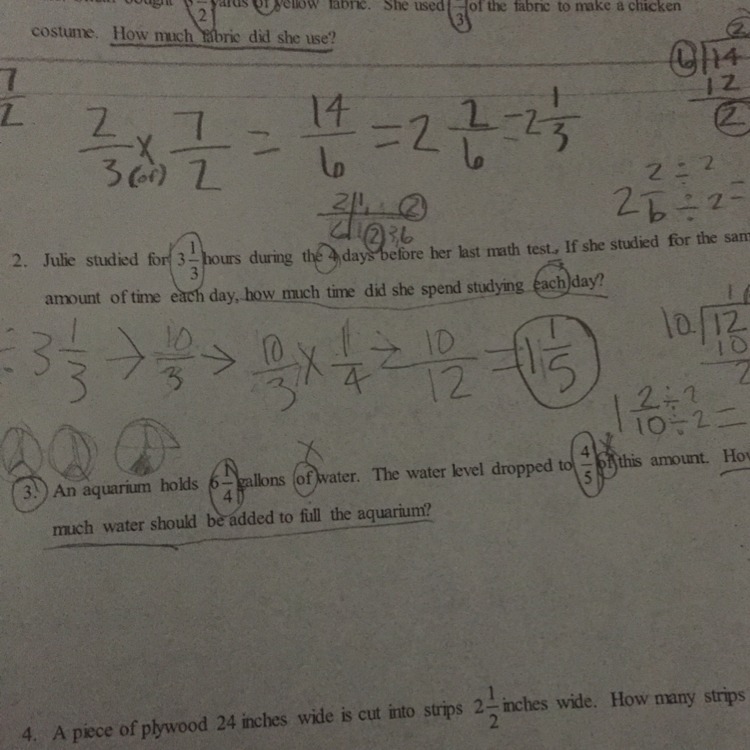 yards of yellow fabric. She used 1/3 of the fabric to make a chicken
costume. How much fabric did she use?
7/2
2/3 x (of) 7/2 = 14/6 = 2 2/6 = 2 1/3
6)14
12
2
2 2÷2/6÷2 =
2. Julie studied for 3 1/3 hours during the 4 days before her last math test. If she studied for the sam
amount of time each day, how much time did she spend studying each day?
÷ 3 1/3 → 10/3 → 10/3 x 1/4 = 10/12 = 1 1/5
10)12
10
2
1 2÷2/10÷2 =
3. An aquarium holds 6 1/4 gallons of water. The water level dropped to 4/5 of this amount. How
x
x
much water should be added to full the aquarium?
4. A piece of plywood 24 inches wide is cut into strips 2 1/2 inches wide. How many strips